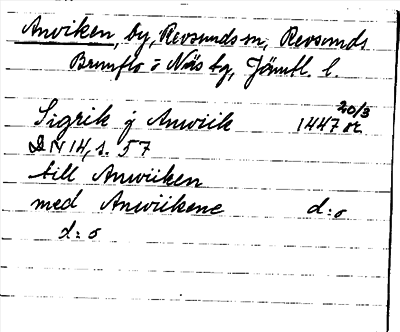 Anviken, by, Revsunds sn, Revsunds
Brunflo o Näs tg, Jämtl. l.
20/3
Sigrik j Anwiik 1447 or.
DN 14, s. 57
till Anwiiken
med Anwiikene d:o
d:o